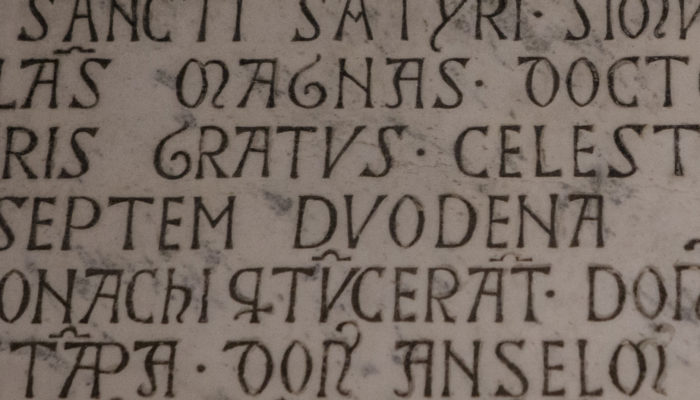 SANCTI SATYRI · SION
LAS MAGNAS · DOCT
RIS GRATVS · CELEST
SEPTEM DVODENA
ONACHI QTVCERAT · DOÑ
TAPA · DOÑ ANSELO